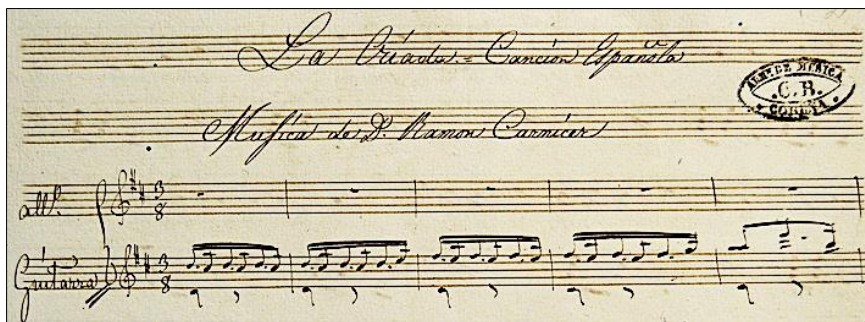 La Criada = Canción Española
ALMN DE MUSICA
C. B.
CORUÑA
Musica de Dn. Ramon Carnicer
all.o
3/8
Guitarra
3/8